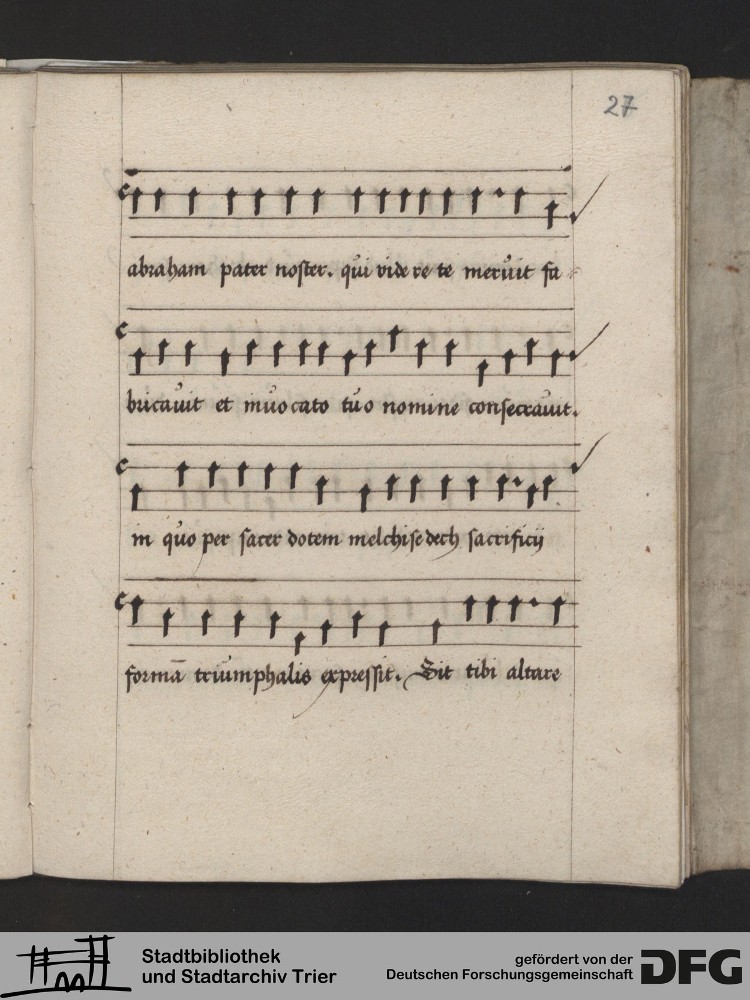 27
abraham pater noster. qui videre te meruit fa
bricauit et inuocato tuo nomine consecrauit.
in quo per sacerdotem melchisedech sacrificij
formā triumphalis expressit. Sit tibi altare
Stadtbibliothek
und Stadtarchiv Trier
gefördert von der
Deutschen Forschungsgemeinschaft
DFG